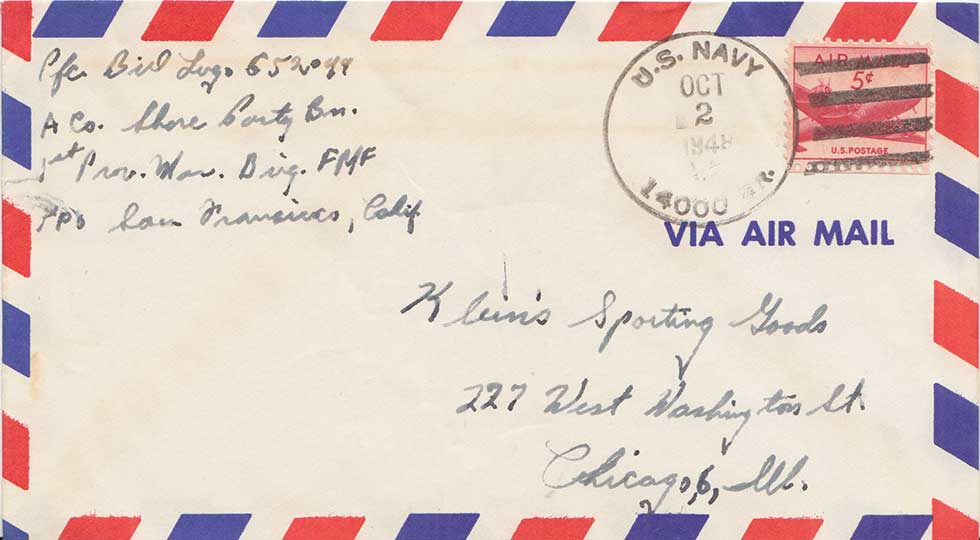 Pfc. Bird Lugo 652099
A Co. Shore Party Bn.
1st Prov. Mar. Brig. FMF
FPO San Fransicso, Calif
U.S. NAVY
OCT
2
1948
14000 BR.
AIR MAIL
5¢
U.S. POSTAGE
VIA AIR MAIL
Klein's Sporting Goods
227 West Washington St.
Chicago, 6, Ill.